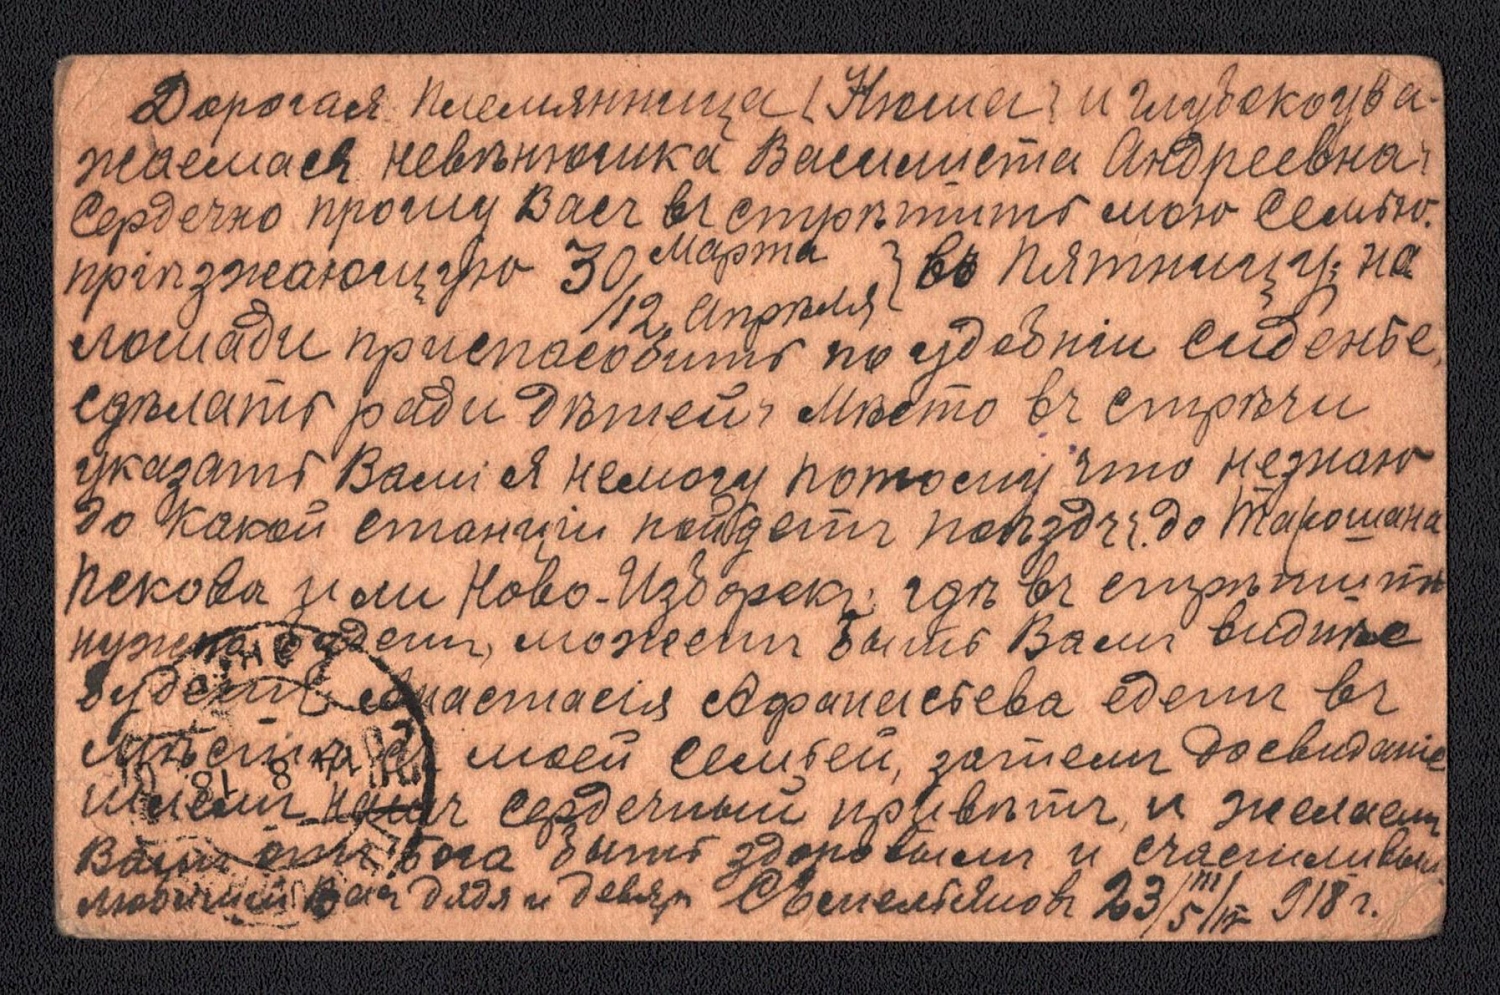 Дорогая племянница (Нюша) и глубокоува-
жаемая невѣнтюшка Василиста Андреевна!
Сердечно прошу Васъ въ стрѣтить мою семью.
пріѣзжающую 30 марта } въ пятницу; на
/12 апрѣля
лошади приспасобить по удобніи сиденье,
сдѣлать ради дѣтей, Мѣсто въ стрѣчи
указать Вамъ я немогу потому что незнаю
до какой станціи пойдетъ поѣздъ: до Тарошана
Пскова или Ново-Изборск; гдѣ въ стрѣтить
нужно будетъ, можетъ быть Вамъ видніе
будетъ Анастасія Афанасьева едетъ въ
мѣстѣ съ моей семьей, затемъ досвиданіе
шлемъ нашъ сердечный привѣтъ, и желаемъ
Вамъ отъ Бога быть здоровыми и счастливыми
любящий Васъ дядя и деверь С Емельяновъ 23/III 5/IV 918 г.